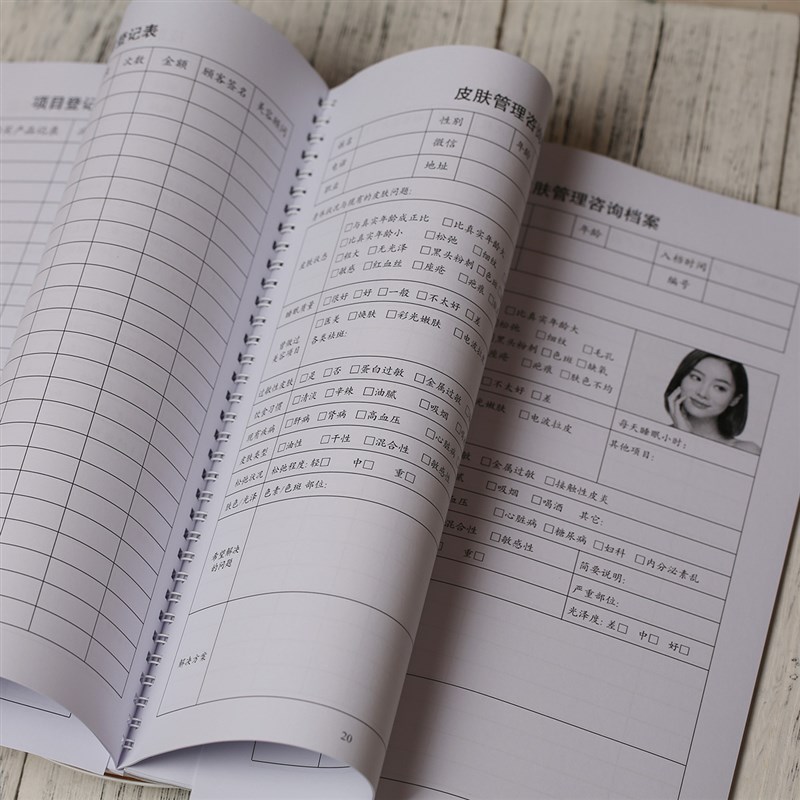 登记表
次数 金额 顾客签名 美容顾问
项目登记
产品记录
皮肤管理咨
性别 年龄
电话 微信
职业 地址
身体状况与现有的皮肤问题:
皮肤状态
□与真实年龄成正比 □比真实年龄大
□比真实年龄小 □松弛 □细纹
□粗大 □无光泽 □黑头粉刺 □色
□敏感 □红血丝 □痤疮 □疤痕
睡眠质量 □很好 □好 □一般 □不太好 □差
曾做过美容项目
□医美 □焕肤 □彩光嫩肤 □电波拉
各类祛斑:
过敏性皮肤 □是 □否 □蛋白过敏 □金属过敏
饮食习惯 □清淡 □辛辣 □油腻 □吸烟
现有疾病 □肝病 □肾病 □高血压 □心脏病
皮肤类型 □油性 □干性 □混合性 □敏感
松弛状况 松弛程度: 轻□ 中□ 重□
肤色/光泽 色素/色斑 部位:
希望解决
的问题
解决方案
20
肤管理咨询档案
年龄 入档时间
编号
□比真实年龄大
□细纹 □毛孔
黑头粉刺 □色斑 □缺氧
□疤痕 □肤色不均
□不太好 □差
光嫩肤 □电波拉皮
每天睡眠小时:
其他项目:
□金属过敏 □接触性皮炎
□吸烟 □喝酒 其它:
□心脏病 □糖尿病 □妇科 □内分泌紊乱
混合性 □敏感性
重□
简要说明:
严重部位:
光泽度: 差□ 中□ 好□